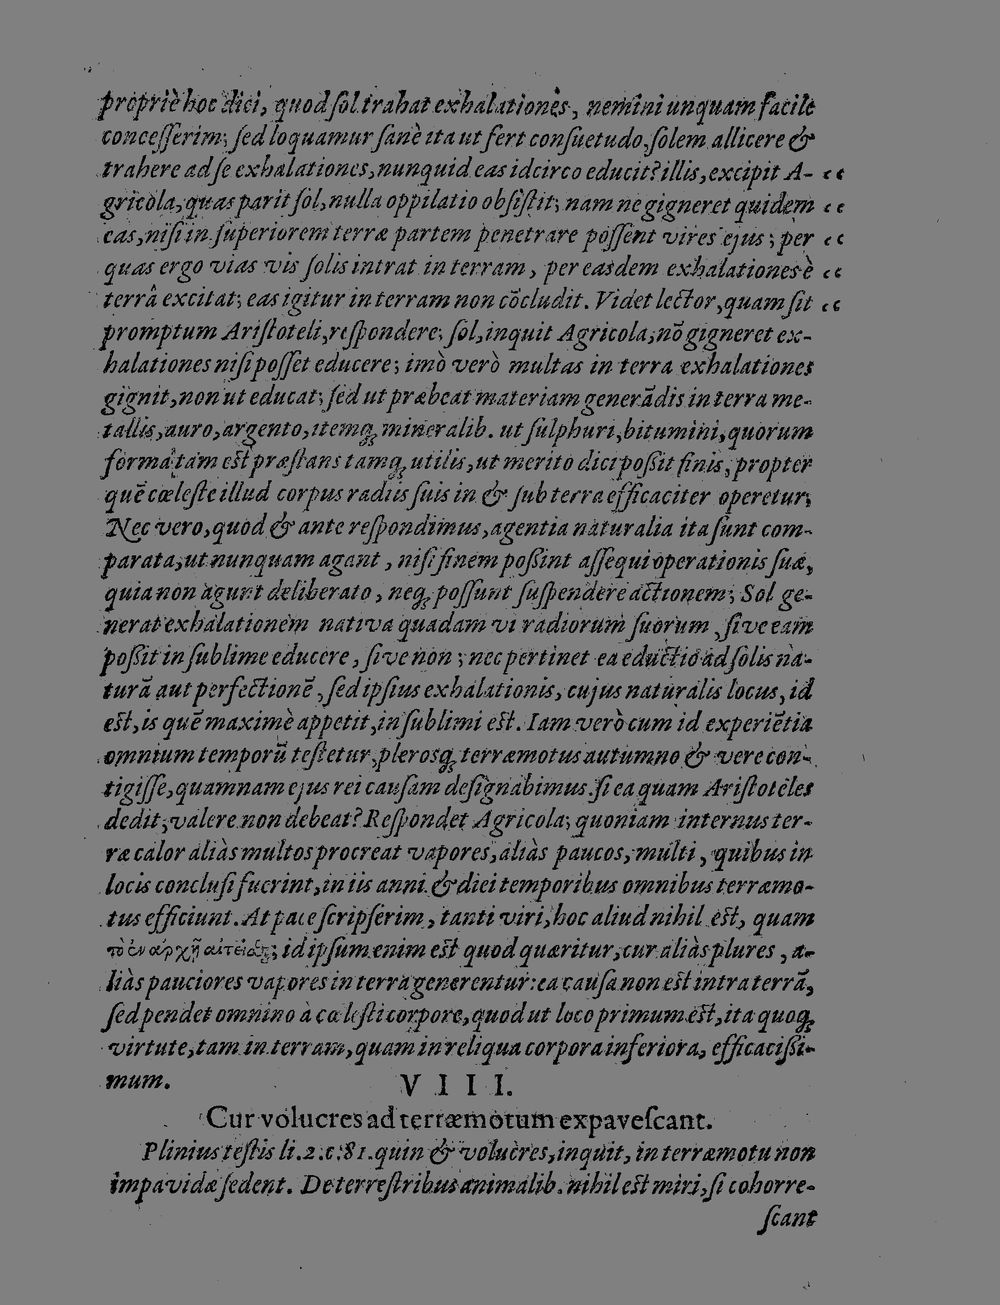 propriè hoc dici, quod ſol trahat exhalationes, nemini unquam facile
conceſſerim; ſed loquamur ſanè ita ut fert conſuetudo, ſolem allicere &
trahere ad ſe exhalationes, nunquid eas idcirco educit? illis, excipit A- “
gricola, quas parit ſol, nulla oppilatio obſiſtit; nam ne gigneret quidem “
eas, niſi in ſuperiorem terræ partem penetrare poſſent vires ejus; per “
quas ergo vias vis ſolis intrat in terram, per easdem exhalationes è “
terrâ excitat; eas igitur in terram non cōcludit. Videt lector, quam ſit “
promptum Ariſtoteli, reſpondere; ſol, inquit Agricola, nō gigneret ex-
halationes niſi poſſet educere; imò verò multas in terra exhalationes
gignit, non ut educat; ſed ut præbeat materiam generādis in terra me-
tallis, auro, argento, itemq́; mineralib. ut ſulphuri, bitumini, quorum
forma tam eſt præſtans tamq́; utilis, ut merito dici poſſit finis, propter
quē cœleſte illud corpus radiis ſuis in & ſub terra efficaciter operetur;
Nec vero, quod & ante reſpondimus, agentia naturalia ita ſunt com-
parata, ut nunquam agant, niſi finem poſſint aſſequi operationis ſuæ,
quia non agunt deliberato, neq́; poſſunt ſuſpendere actionem; Sol ge-
nerat exhalationem nativa quadam vi radiorum ſuorum, ſive eam
poſſit in ſublime educere, ſive non; nec pertinet ea eductio ad ſolis na-
turā aut perfectionē, ſed ipſius exhalationis, cujus naturalis locus, id
eſt, is quē maximè appetit, in ſublimi eſt. Iam verò cum id experiētia
omnium temporū teſtetur, plerosq́; terræmotus autumno & vere con-
tigiſſe, quamnam ejus rei cauſam deſignabimus ſi ea quam Ariſtoteles
dedit, valere non debeat? Reſpondet Agricola; quoniam internus ter-
ræ calor aliàs multos procreat vapores, aliàs paucos, multi, quibus in
locis concluſi fuerint, in iis anni & diei temporibus omnibus terræmo-
tus efficiunt. At pace ſcripſerim, tanti viri, hoc aliud nihil eſt, quam
τὸ ἐν ἀρχῇ αἰτεῖσθαι; id ipſum enim eſt quod quæritur, cur aliàs plures, a-
liàs pauciores vapores in terra generentur: ea cauſa non eſt intra terrā,
ſed pendet omnino à cœleſti corpore, quod ut loco primum eſt, ita quoq́;
virtute, tam in terram, quam in reliqua corpora inferiora, efficaciſſi-
mum.
VIII.
Cur volucres ad terræmotum expaveſcant.
Plinius teſtis li. 2. c. 81. quin & volucres, inquit, in terræmotu non
impavidæ ſedent. De terreſtribus animalib. nihil eſt miri, ſi cohorre-
ſcant